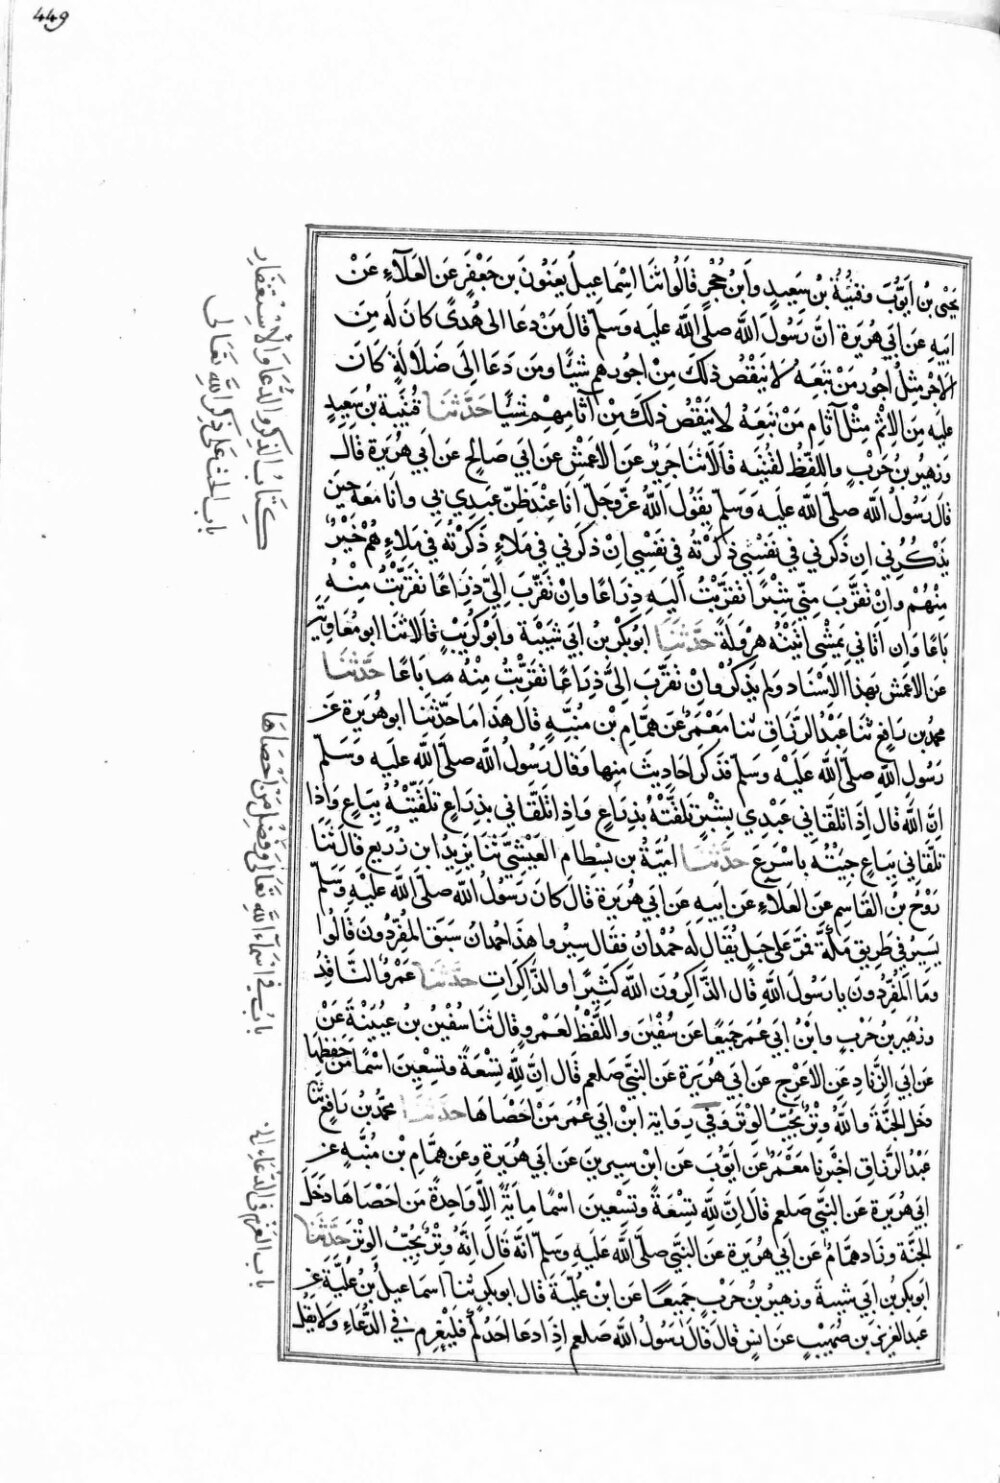 449
يحيى بن ايوب وقتيبة بن سعيد وابن حجر قالوا ثنا اسماعيل يعنون بن جعفر عن العلاء عن
ابيه عن ابي هريرة ان رسول الله صلى الله عليه وسلم قال من دعا الى هدى كان له من
الاجر مثل اجور من تبعه لا ينقص ذلك من اجورهم شيئا ومن دعا الى ضلالة كان
عليه من الاثم مثل آثام من تبعه لا ينقص ذلك من آثامهم شيئا حدثنا قتيبة بن سعيد
وزهير بن حرب واللفظ لقتيبه قالا ثنا جرير عن الاعمش عن ابي صالح عن ابي هريرة قال
قال رسول الله صلى الله عليه وسلم يقول الله عز وجل انا عند ظن عبدي بي وانا معه حين
يذكرني ان ذكرني في نفسي ذكرته في نفسي ان ذكرني في ملاء ذكرته في ملاء هم خير
منهم وان تقرب مني شبرا تقربت اليه ذراعا وان تقرب الي ذراعا تقربت منه
باعا وان اتاني يمشي اتيته هرولة حدثنا ابو بكر بن ابي شيبة وابو كريب قالا ثنا ابو معاوية
عن الاعمش بهذا الاسناد ولم يذكر وان تقرب الي ذراعا تقربت منه باعا حدثنا
محمد بن رافع ثنا عبد الرزاق ثنا معمر عن همام بن منبه قال هذا ما حدثنا ابو هريرة عن
رسول الله صلى الله عليه وسلم فذكر احاديث منها وقال رسول الله صلى الله عليه وسلم
ان الله قال اذا تلقاني عبدي بشبر تلقيته بذراع واذا تلقاني بذراع تلقيته بباع واذا
تلقاني بباع جيته باسرع حدثنا امية بن بسطام العيشي ثنا يزيد ابن زريع قال ثنا
روح بن القاسم عن العلاء عن ابيه عن ابي هريرة قال كان رسول الله صلى الله عليه وسلم
يسير في طريق مكة فمر على جبل يقال له جمدان فقال سيروا هذا جمدان سبق المفردون قالوا
وما المفردون يا رسول الله قال الذاكرون الله كثيرا والذاكرات حدثنا عمرو الناقد
وزهير بن حرب وابن ابي عمر جميعا عن سفين واللفظ لعمرو قال ثنا سفين بن عيينة عن
عن ابي الزناد عن الاعرج عن ابي هريرة عن النبي صلعم قال ان لله تسعة وتسعين اسما من حفظها
دخل الجنة والله وتر يحب الوتر وفي رواية ابن ابي عمر من احصاها حدثنا محمد بن رافع ثنا
عبد الرزاق اخبرنا معمر عن ايوب عن ابن سيرين عن ابي هريرة وعن همام بن منبه عن
ابي هريرة عن النبي صلعم قال ان لله تسعة وتسعين اسما ماية الا واحدة من احصاها دخل
الجنة وزاد همام عن ابي هريرة عن النبي صلى الله عليه وسلم انه قال انه وتر يحب الوتر حدثنا
ابو بكر بن ابي شيبة وزهير بن حرب جميعا عن ابن علية قال ابو بكر ثنا اسماعيل بن علية عن
عبد العزيز بن صهيب عن انس قال قال رسول الله صلعم اذا دعا احدكم فليعزم في الدعاء ولا يقل
كتاب الذكر والدعا والاستغفار
باب الحث على ذكر الله تعالى
باب في اسماء الله تعالى وفضل من احصاها
باب العزم في الدعاء